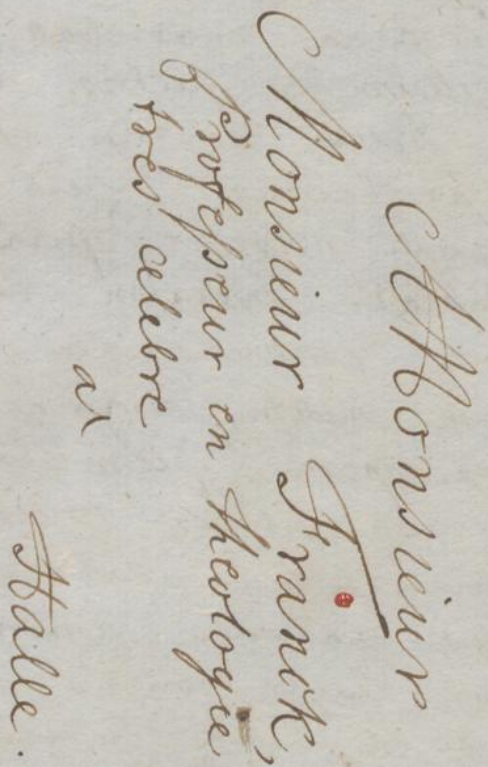 A Monsieur
Monsieur Franck,
Professeur en theologie
tres celebre
a
Halle.